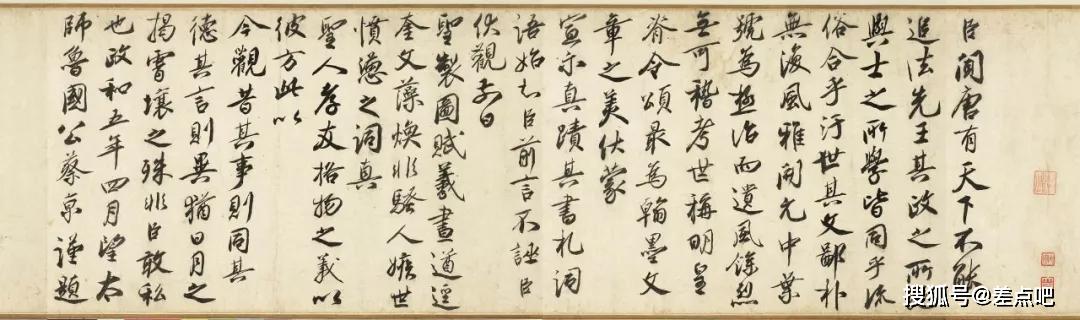 臣聞唐有天下不能
追法先王其政之所
與士之所學皆同乎流
俗合乎汙世其文鄙朴
無風雅開元中葉
號為極治而遺風餘烈
無可稽考世稱明皇
脊令頌最為翰墨文
章之美伏蒙
宣示真蹟其書札詞
語始知臣前言不誣臣
伏觀前日
聖製圖賦羲畫遒逕
奎文藻煥非騷人嫉世
憤懣之詞真
聖人孝友格物之義以
彼方此以
今觀昔其事則同其
德其言則異猶日月之
揭霄壤之殊非臣敢私
也政和五年四月望太
師魯國公蔡京謹題
搜狐号@差点吧